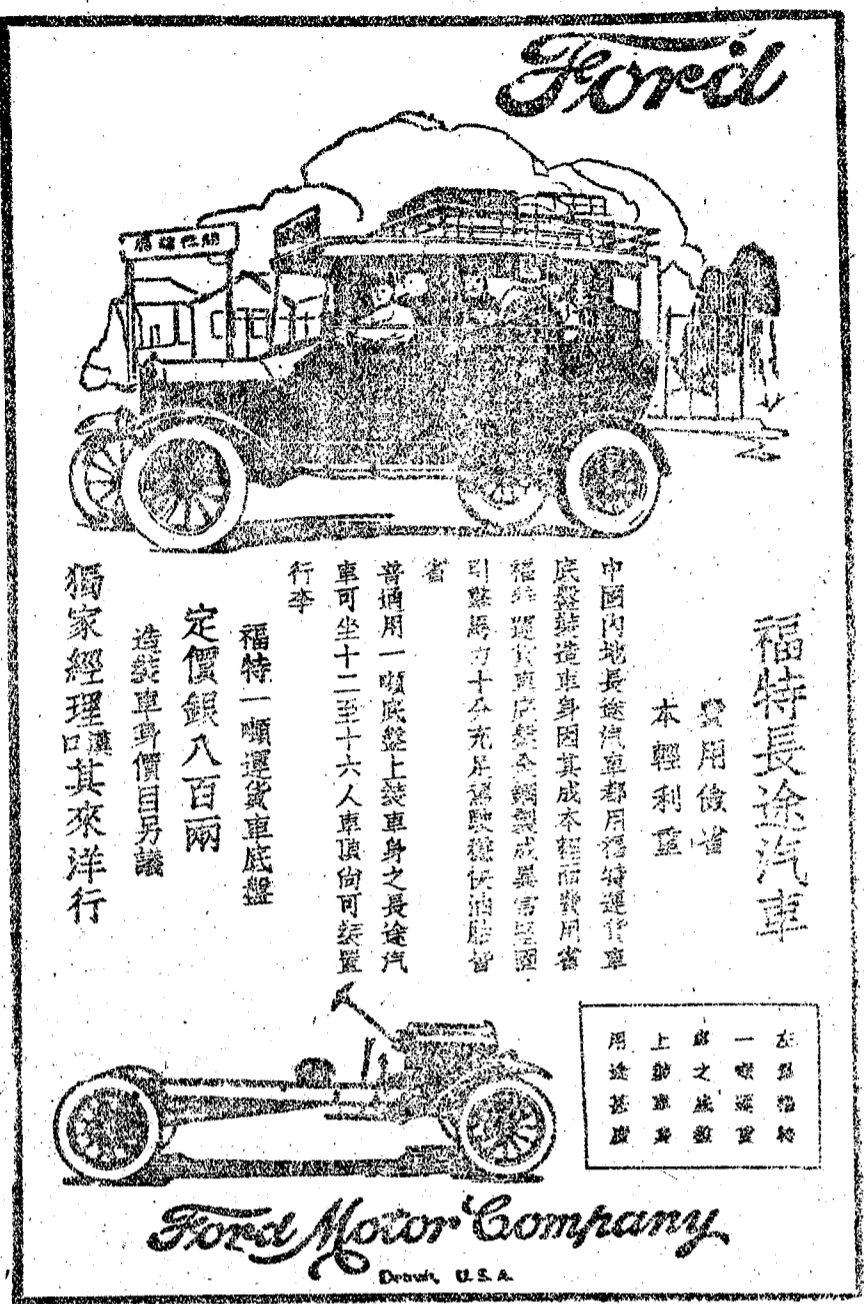 Ford
福特長途汽車
費用儉省
本輕利重
中國內地長途汽車都用福特運貨車
底盤裝造車身因其成本輕而費用省
福特運貨車底盤全鋼製成異常堅固
引擎馬力十分充足駕駛穩快油胎皆
省
普通用一噸底盤上裝車身之長途汽
車可坐十二至十六人車頂尚可裝置
行李
福特一噸運貨車底盤
定價銀八百兩
造裝車身價目另議
獨家經理漢口其來洋行
左為福特
一噸運貨
車之底盤
上裝車身
用途甚廣
Ford Motor Company
Detroit, U.S.A.